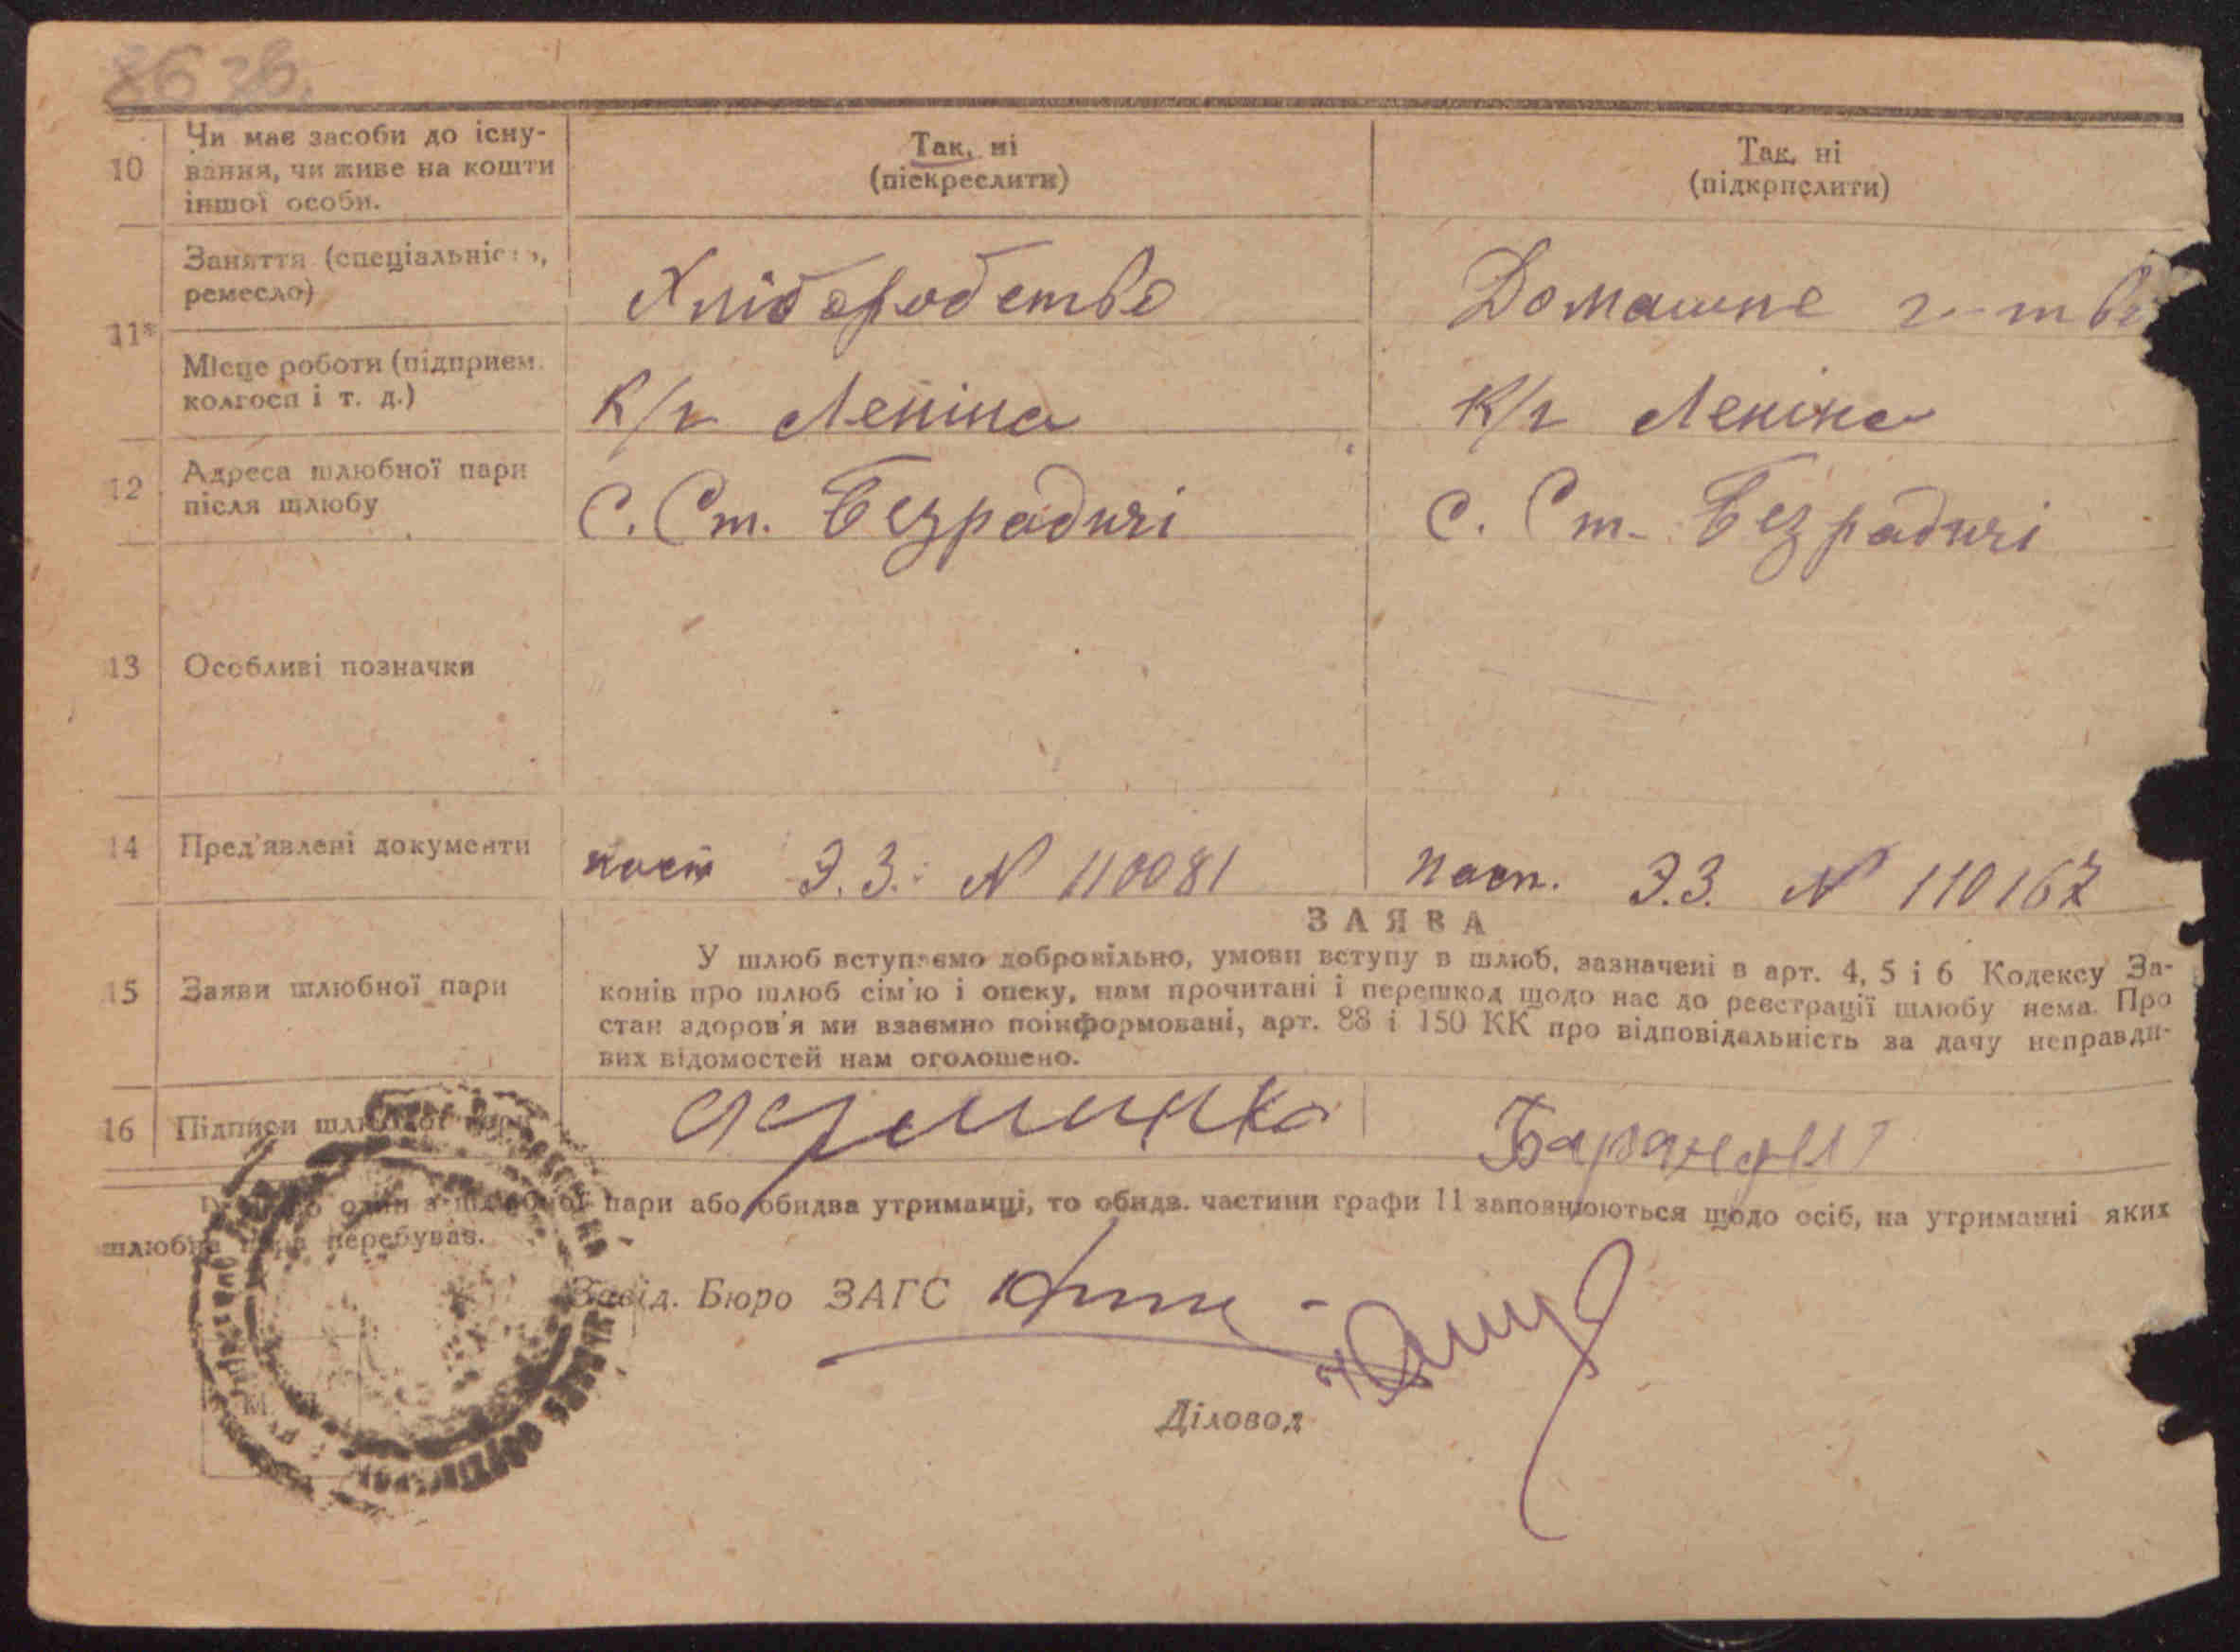 86 зв.
10 Чи має засоби до існу-
вання, чи живе на кошти
іншої особи.
Так, ні
(піекреслити)
Так, ні
(підкрпслити)
11*
Заняття (спеціальніс
ремесло)
Хліборобство
Домашнє г-тво
Місце роботи (підприєм.
колгосп і т. д.)
К/г Леніна
К/г Леніна
12 Адреса шлюбної пари
після шлюбу
С. Ст. Безрадичі
С. Ст. Безрадичі
13 Особливі позначки
14 Пред'явлені документи
пасп Э.З. N 110081
пасп. Э.З. N 110167
ЗАЯВА
15 Заяви шлюбної пари
У шлюб вступаємо добровільно, умови вступу в шлюб, зазначені в арт. 4, 5 і 6 Кодексу За-
конів про шлюб сім'ю і опеку, нам прочитані і перешкод щодо нас до реєстрації шлюбу нема. Про
стан здоров'я ми взаємно поінформовані, арт. 88 і 150 КК про відповідальність за дачу неправди-
вих відомостей нам оголошено.
16 Підписи шлюбної пари
один з шлюбної пари або обидва утриманці, то обидв. частини графи 11 заповнюються щодо осіб, на утриманні яких
шлюбна пара перебуває.
Завід. Бюро ЗАГС
Діловод